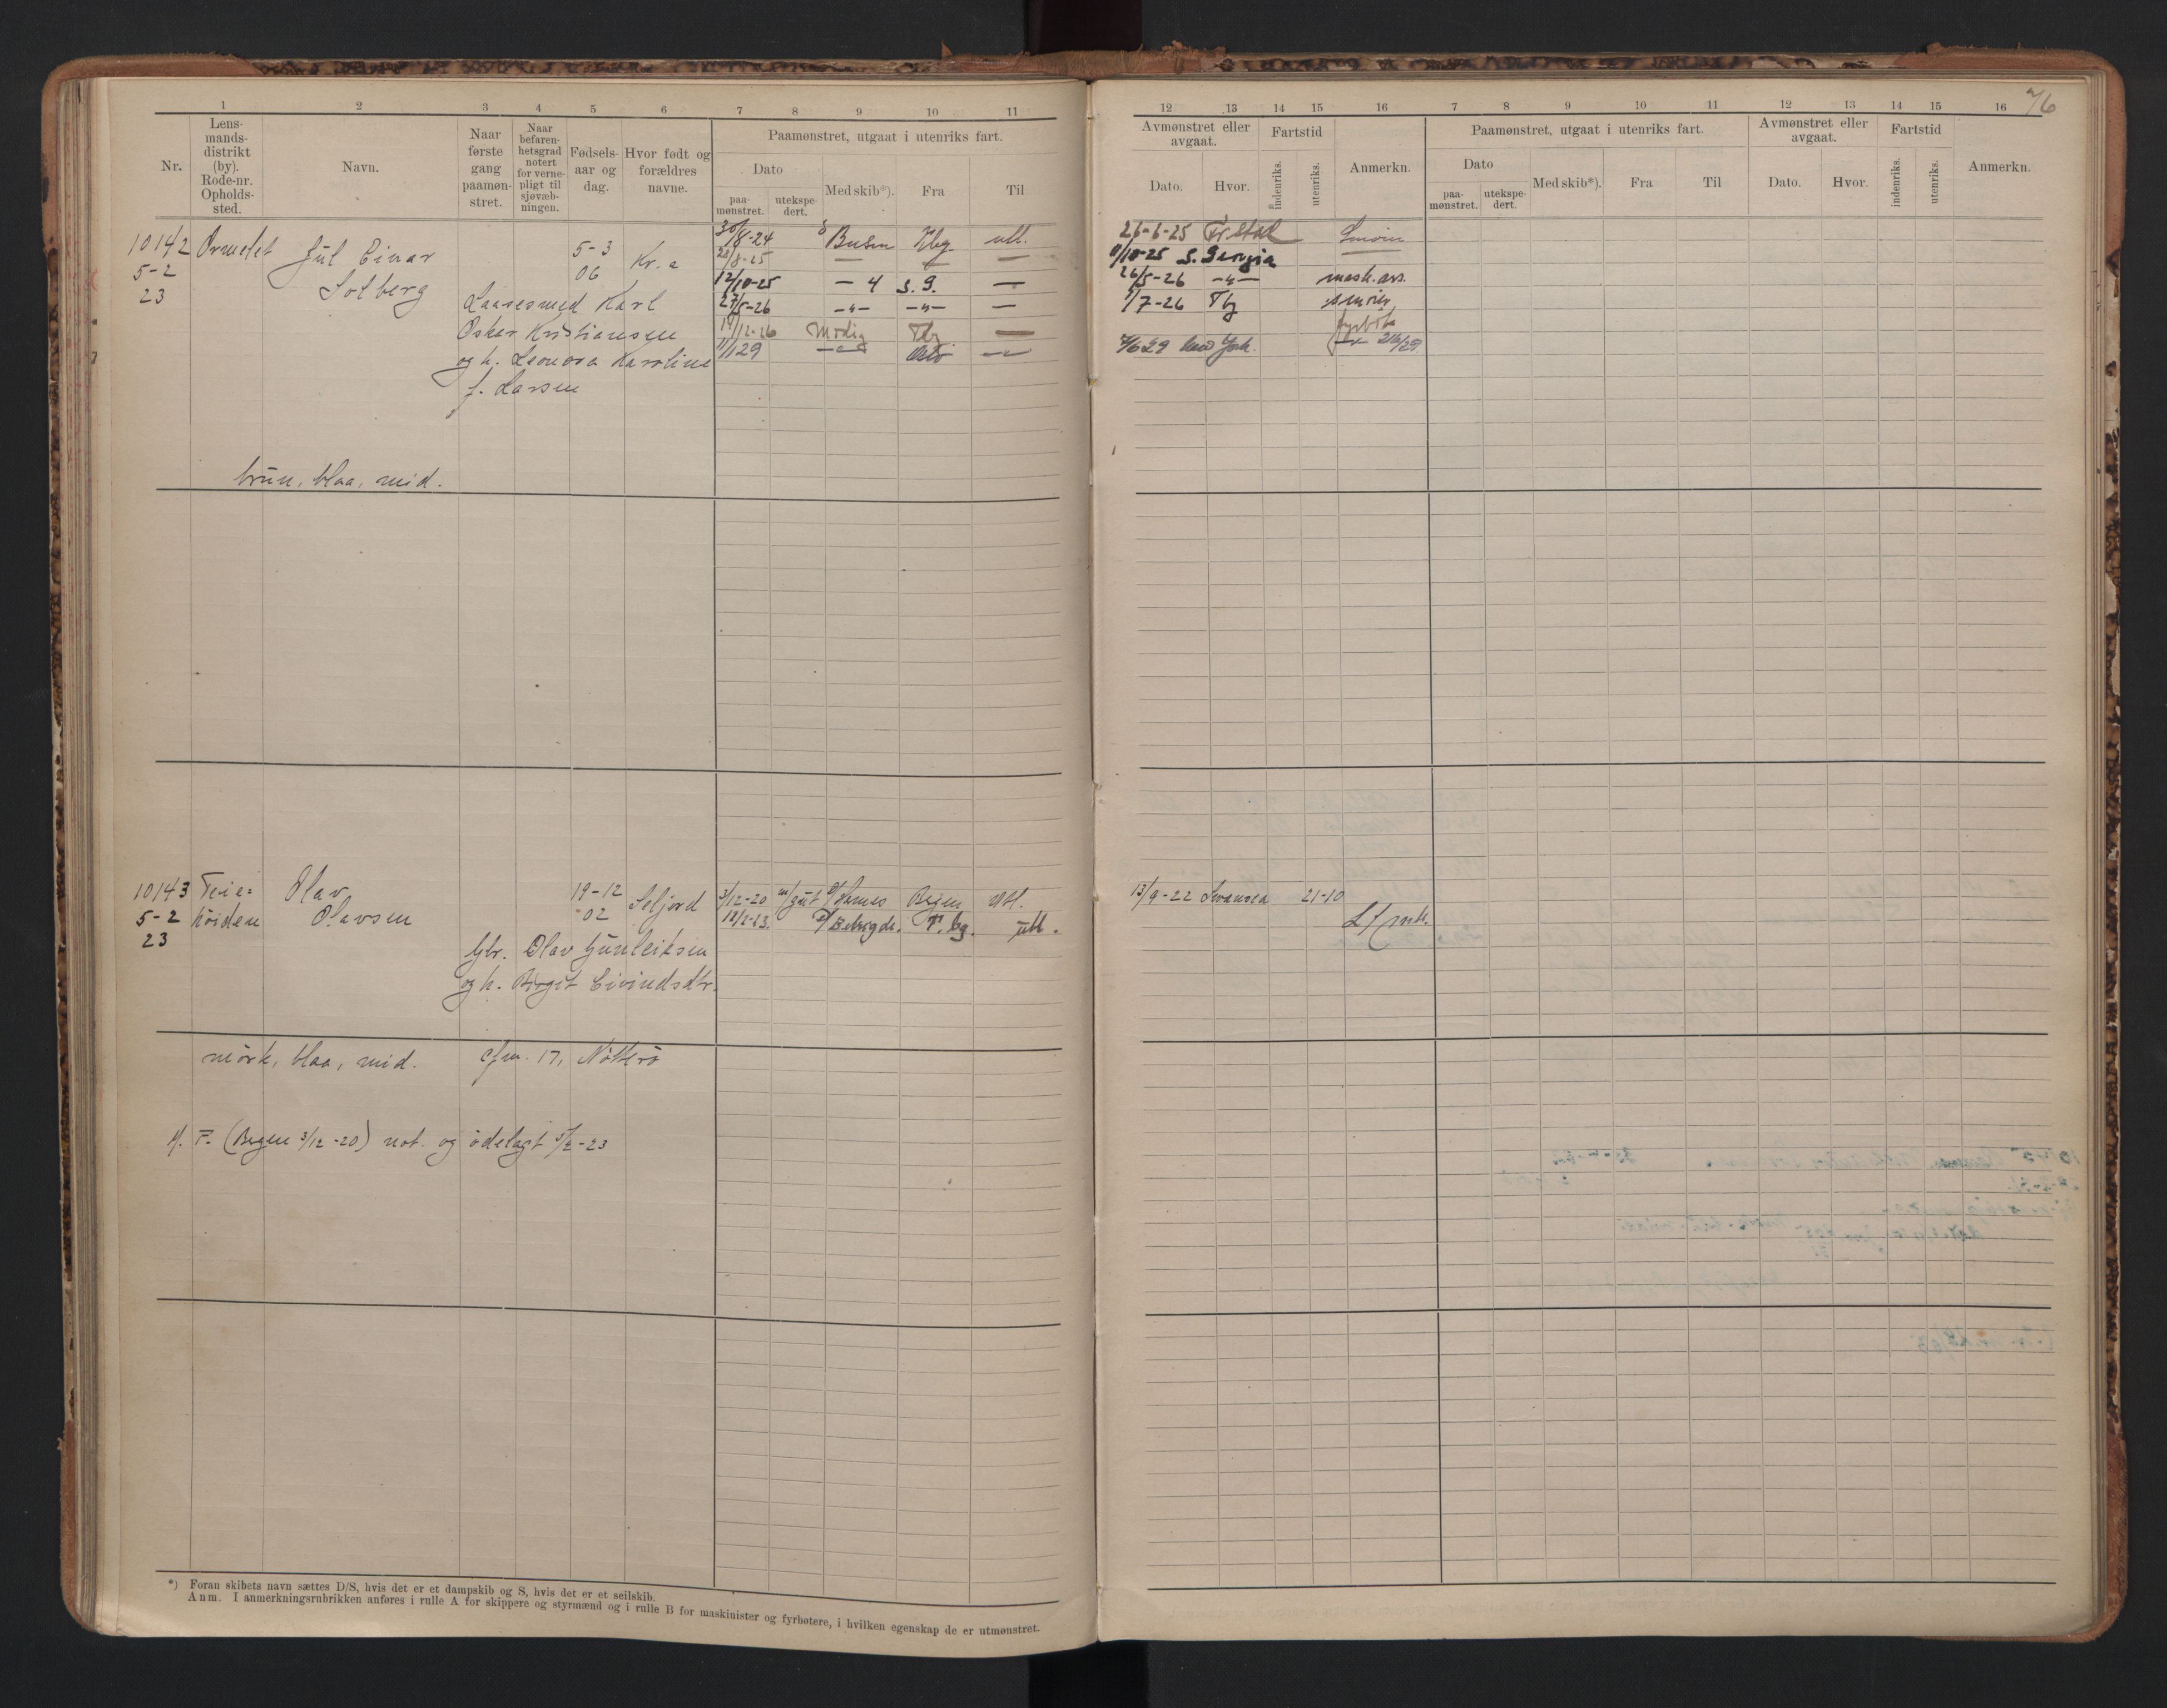 1 2 3 4 5 6 7 8 9 10 11
Nr.
Lens-
mands-
distrikt
(by).
Rode-nr.
Opholds-
sted.
Navn.
Naar
første
gang
paamøn-
stret.
Naar
befaren-
hetsgrad
notert
for verne-
pligt til
sjøvæb-
ningen.
Fødsels-
aar og
dag.
Hvor født og
forældres
navne.
Paamønstret, utgaat i utenriks fart.
Dato
paa-
mønstret.
utekspe-
dert.
Med skib*).
Fra
Til
10142 Ormelet Jul Einar 5-3 Kr.a 30/8-24 Busen Tbg utl.
5-2 Solberg 06 /8-25 — — —
23 12/10-25 — 4 S. G. —
Laasesmed Karl 27/5-26 —"— —"— —
Oskar Kristiansen /12-26 Modig Tbg —
og h. Leonora Karoline 1/129 —"— Oslo —"—
f. Larsen
brun, blaa, mid.
10143 Teie= Olav 19-12 Seljord 3/12-20 m/gut D/ Bergen Utl.
5-2 høiden Olavsen 02 12/2-23. T.bg. utl.
23
Gbr. Olav Gunleiksen
og h. Birgit Eivindsdtr.
mørk, blaa, mid. cfm. 17, Nøtterø
H. F. (Bergen 3/12-20) not. og ødelagt 5/2-23
*) Foran skibets navn sættes D/S, hvis det er et dampskib og S, hvis det er et seilskib.
Anm. I anmerkningsrubrikken anføres i rulle A for skippere og styrmænd og i rulle B for maskinister og fyrbøtere, i hvilken egenskap de er utmønstret.
76
12 13 14 15 16 7 8 9 10 11 12 13 14 15 16
Avmønstret eller
avgaat.
Dato.
Hvor.
Fartstid
indenriks.
utenriks.
Anmerkn.
Paamønstret, utgaat i utenriks fart.
Dato
paa-
mønstret.
utekspe-
dert.
Med skib*).
Fra
Til
Avmønstret eller
avgaat.
Dato.
Hvor.
Fartstid
indenriks.
utenriks.
Anmerkn.
26-6-25 Fr.stad Smører
/10-25 S. Georgia —
26/5-26 —"— mask. ass.
/7-26 Tbg smører
fyrbøter
/6 29 New York.
13/9-22 Swansea 21-10
L/ mtr.